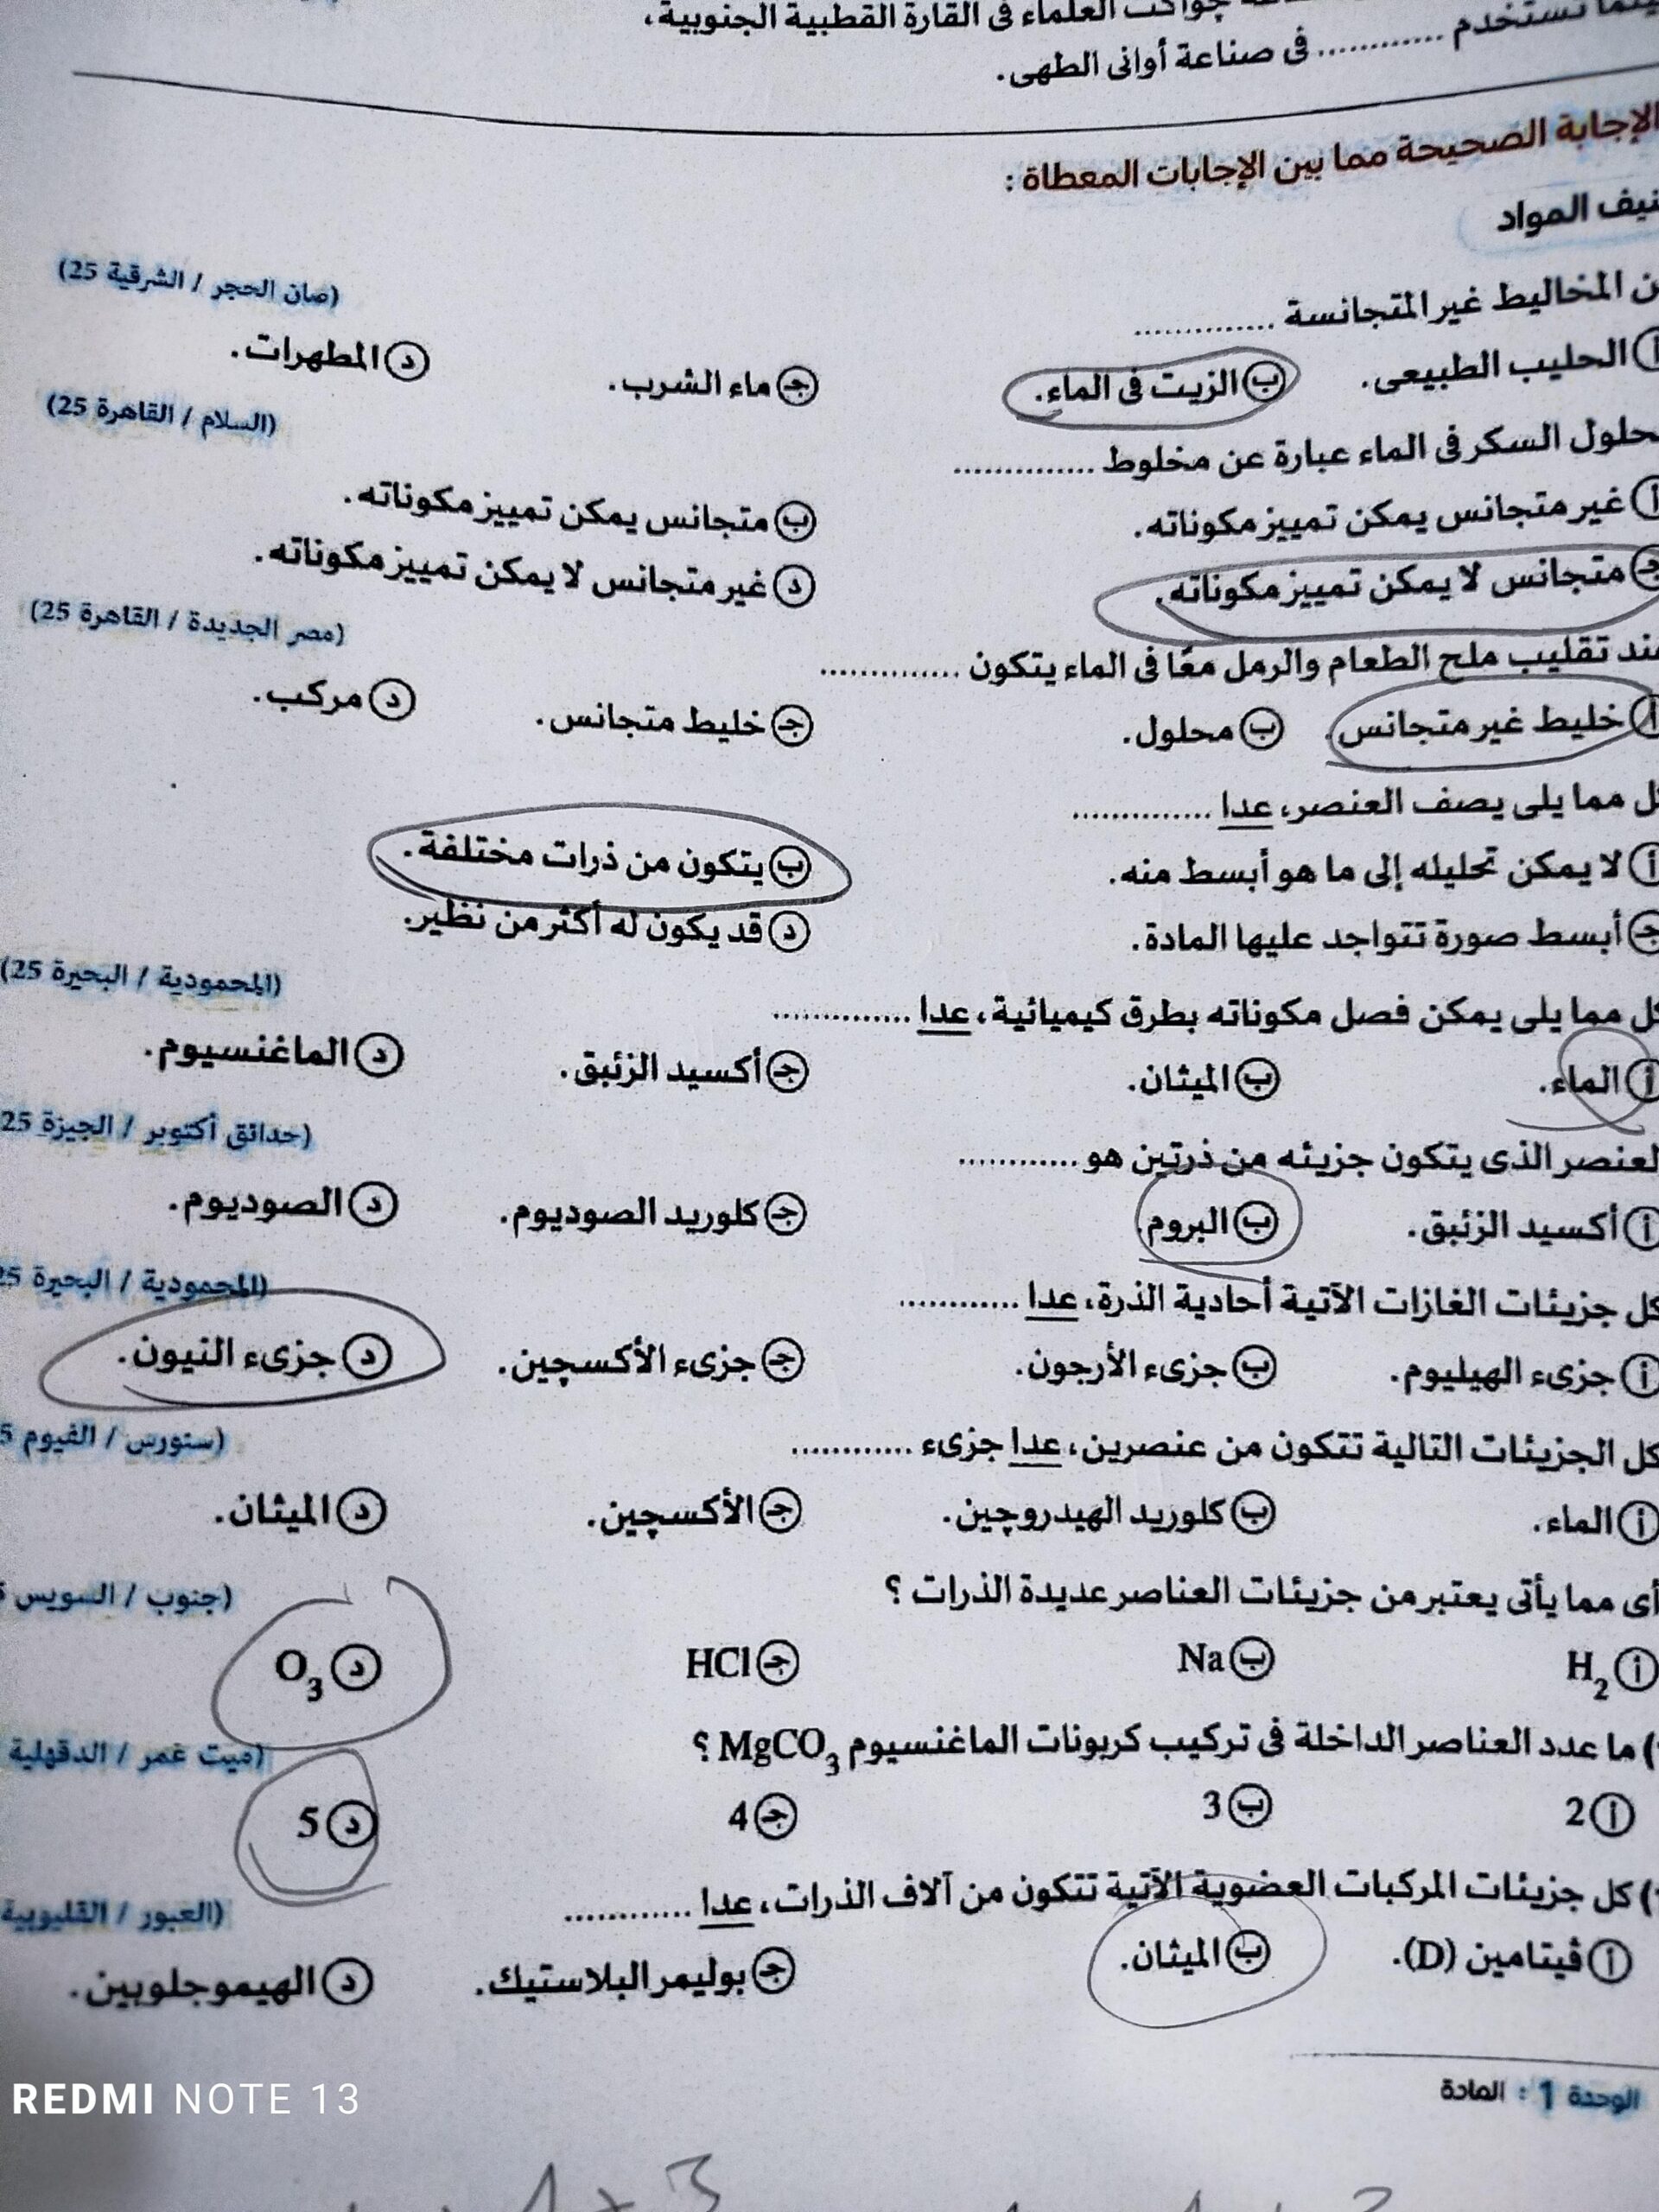 تستخدم ............ فى صناعة أوانى الطهى.
العلماء فى القارة القطبية الجنوبية،
الإجابة الصحيحة مما بين الإجابات المعطاة :
المواد
المخاليط غير المتجانسة .............. (صان الحجر / الشرقية 25)
أ الحليب الطبيعى. ب الزيت فى الماء. جـ ماء الشرب. د المطهرات.
السكر فى الماء عبارة عن مخلوط .............. (السلام / القاهرة 25)
أ غير متجانس يمكن تمييز مكوناته. ب متجانس يمكن تمييز مكوناته.
جـ متجانس لا يمكن تمييز مكوناته. د غير متجانس لا يمكن تمييز مكوناته.
تقليب ملح الطعام والرمل معًا فى الماء يتكون .............. (مصر الجديدة / القاهرة 25)
أ خليط غير متجانس. ب محلول. جـ خليط متجانس. د مركب.
مما يلى يصف العنصر، عدا ..............
أ لا يمكن تحليله إلى ما هو أبسط منه. ب يتكون من ذرات مختلفة.
جـ أبسط صورة تتواجد عليها المادة. د قد يكون له أكثر من نظير.
كل مما يلى يمكن فصل مكوناته بطرق كيميائية، عدا .............. (المحمودية / البحيرة 25)
أ الماء. ب الميثان. جـ أكسيد الزئبق. د الماغنسيوم.
الذى يتكون جزيئه من ذرتين هو ............ (حدائق أكتوبر / الجيزة 25
أ أكسيد الزئبق. ب البروم. جـ كلوريد الصوديوم. د الصوديوم.
كل جزيئات الغازات الآتية أحادية الذرة، عدا ............ (المحمودية / البحيرة 25
أ جزىء الهيليوم. ب جزىء الأرجون. جـ جزىء الأكسچين. د جزىء النيون.
كل الجزيئات التالية تتكون من عنصرين، عدا جزىء ............ (سنورس / الفيوم
أ الماء. ب كلوريد الهيدروچين. جـ الأكسچين. د الميثان.
أى مما يأتى يعتبر من جزيئات العناصر عديدة الذرات ؟ (جنوب / السويس
أ H₂ ب Na جـ HCl د O₃
) ما عدد العناصر الداخلة فى تركيب كربونات الماغنسيوم MgCO₃ ؟ (ميت غمر / الدقهلية
أ 2 ب 3 جـ 4 د 5
) كل جزيئات المركبات العضوية الآتية تتكون من آلاف الذرات، عدا ............ (العبور / القليوبية
أ ڤيتامين (D). ب الميثان. جـ بوليمر البلاستيك. د الهيموجلوبين.
الوحدة 1 : المادة
REDMI NOTE 13